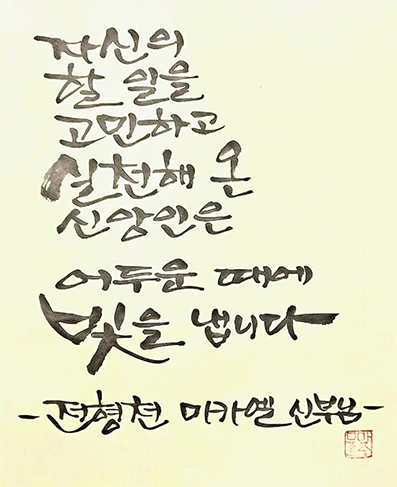 자신의
할 일을
고민하고
실천해 온
신앙인은
어두운 때에
빛을 냅니다
-전형천 미카엘 신부님-